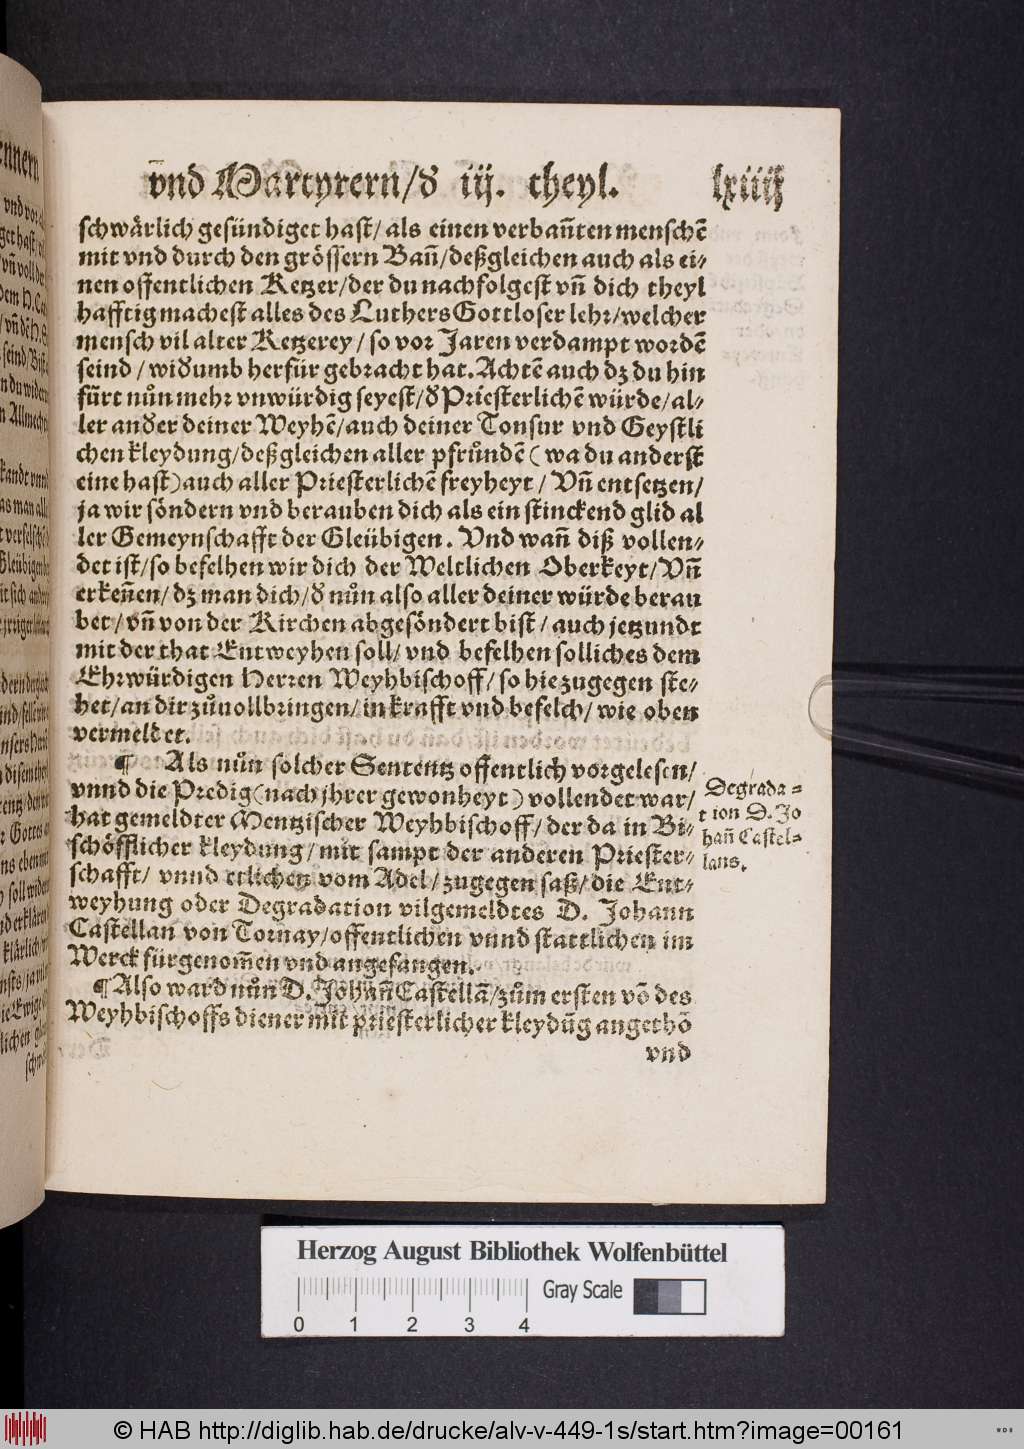 vnd Martyrern/ď iij. theyl. lxiiij
schwårlich gesündiget hast/ als einen verbañten menschē
mit vnd durch den grössern Bañ/deßgleichen auch als ei⸗
nen offentlichen Ketzer/der du nachfolgest vñ dich theyl
hafftig machest alles des Luthers Gottloser lehr/welcher
mensch vil alter Ketzerey/ so vor Jaren verdampt wordē
seind/ widumb herfür gebracht hat. Achtē auch dz du hin
fürt nůn mehr vnwürdig seyest/ď Priesterlichē würde/al⸗
ler anďer deiner Weyhē/auch deiner Tonsur vnd Geystli
chen kleydung/deßgleichen aller pfrůndē (wa du anderst
eine hast)auch aller Priesterlichē freyheyt/ Vñ entsetzen/
ja wir söndern vnd berauben dich als ein stinckend glid al
ler Gemeynschafft der Gleübigen. Vnd wañ diß vollen⸗
det ist/so befelhen wir dich der Weltlichen Oberkeyt/Vñ
erkeñen/ dz man dich/ď nůn also aller deiner würde berau
bet/vñ von der Kirchen abgesöndert bist/auch jetzundt
mit der that Entweyhen soll/ vnd befelhen solliches dem
Ehrwürdigen Herren Weyhbischoff/ so hie zugegen ste⸗
het/an dir zůuollbringen/ in krafft vnd befelch/ wie oben
vermeldet.
¶ Als nůn solcher Sententz offentlich vorgelesen/
vnnd die Predig(nach jhrer gewonheyt) vollendet war/
hat gemeldter Mentzischer Weyhbischoff/ der da in Bi⸗
schöfflicher kleydung/ mit sampt der anderen Priester⸗
schafft/ vnnd etlichen vom Adel/ zugegen saß/ die Ent⸗
weyhung oder Degradation vilgemeldtes D. Johann
Castellan von Tornay/offentlichen vnnd stattlichen im
Werck fürgenom̃en vnd angefangen.
¶ Also ward nůn D. Johañ Castellā/zům ersten võ des
Weyhbischoffs diener mit priesterlicher kleydũg angethõ
vnd
Degrada⸗
tion D. Jo
hañ Castel⸗
lans.
Herzog August Bibliothek Wolfenbüttel
0 1 2 3 4
Gray Scale
© HAB http://diglib.hab.de/drucke/alv-v-449-1s/start.htm?image=00161